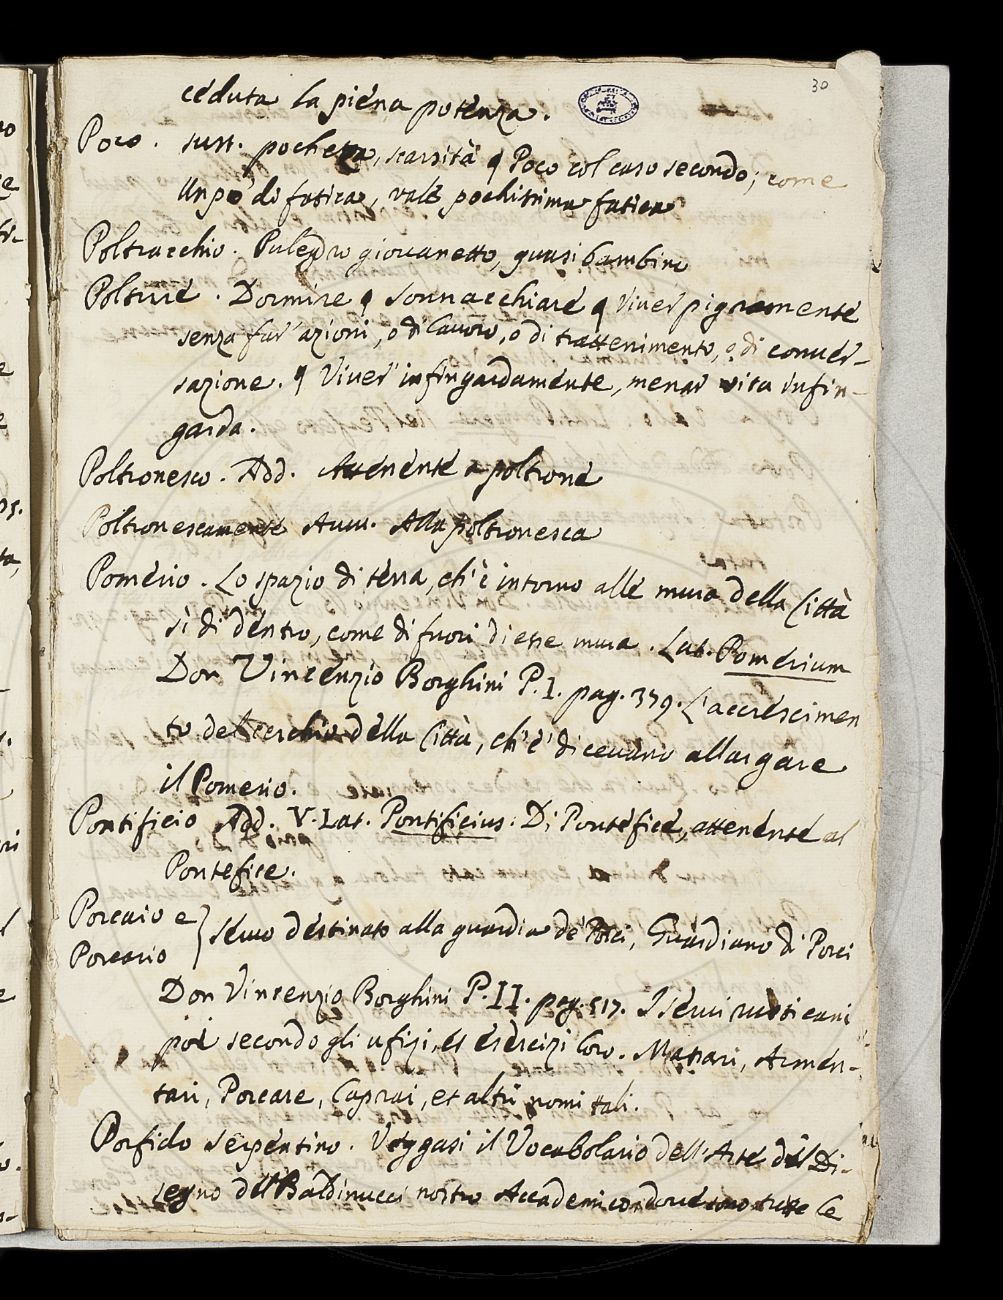 30
ceduta la piena potenza.
Poco. sust. pochezza, scarsità ¶ Poco col caso secondo; come
Un pò di fatica, vale pochissima fatica
Poltracchio. Puledro giovanetto, quasi bambino
Poltrire. Dormire ¶ sonnacchiare ¶ Viver pigramente
senza far' azioni, o di lavoro, o di trattenimento, o di conver-
sazione. ¶ Viver' infingardamente, menar vita infin-
garda.
Poltronesco. Add. Attenente a poltrone
Poltronescamente Avv. Alla poltronesca
Pomerio. Lo spazio di terra, ch'è intorno alle mura della Città
sì di dentro, come di fuori di esse mura. Lat. Pomerium
Don Vincenzio Borghini P. I. pag. 379. L'accrescimen
to del cerchio della Città, ch'e' dicevano allargare
il Pomerio.
Pontificio Add. V. Lat. Pontificius. Di Pontefice, attenente al
Pontefice.
Porcaio e
Porcario } servo destinato alla guardia de' Porci, Guardiano di Porci
Don Vincenzio Borghini P. II. pag. 517. I servi rusticani
poi secondo gli ufizi, et esercizi loro. Massari, Armen-
tari, Porcare, Caprai, et altri nomi tali.
Porfido serpentino. Veggasi il Vocabolario dell'Arte del Di-
segno del Baldinucci nostro Accademico, dove sono tutte le